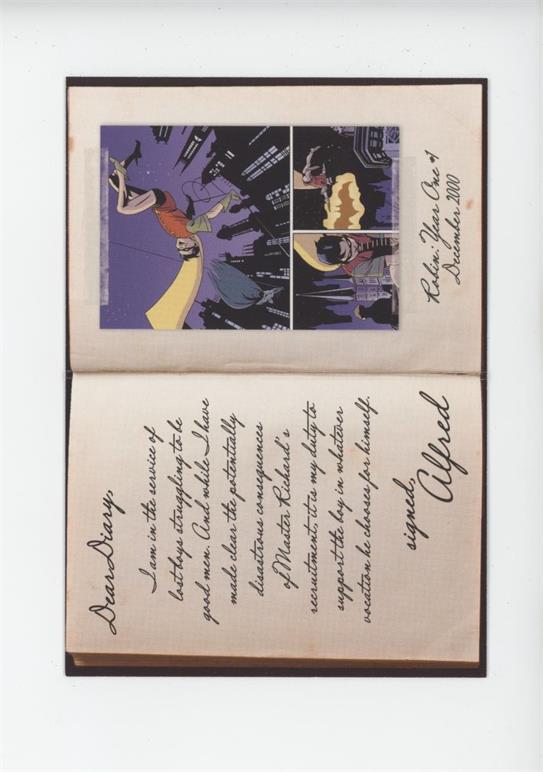 Dear Diary,
I am in the service of
lost boys struggling to be
good men. And while I have
made clear the potentially
disastrous consequences
of Master Richard's
recruitment, it is my duty to
support the boy in whatever
vocation he chooses for himself.
signed,
Alfred
Robin: Year One #1
December 2000